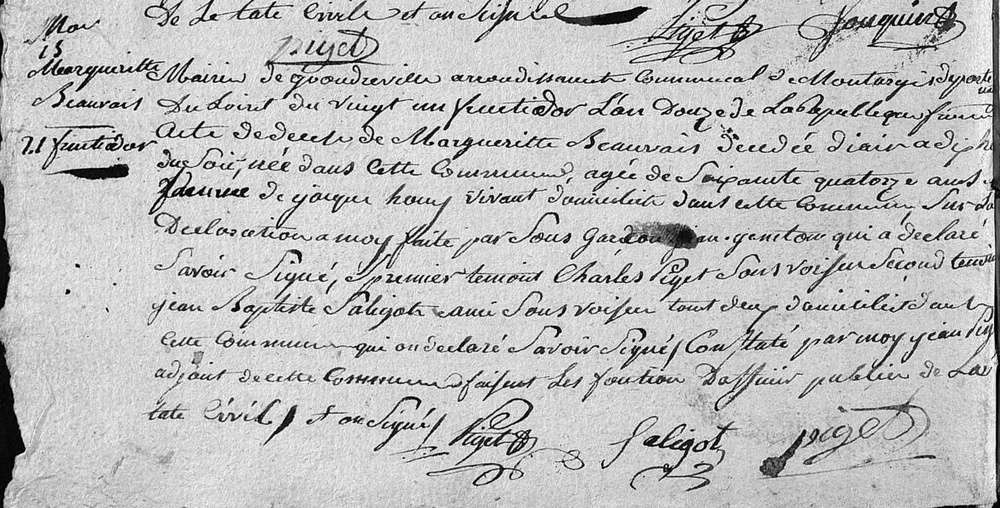 De Le tate Civile et on Signé
piget Piget Jouquin
Mor
15
Margueritte
Beauvais
21 fructidor
Mairie de arondissement Communal de Montargis departe
Du Loiret du vingt un fructidor L'an Douze de La Republique franc
Acte de decele de Margueritte Beauvais decedée diair a dix h
du Soir, née dans Cette Commune, agée de Soixante quatorze ans
famme de jaque houy vivant domicilié dans cette Commune Sur La
Declaration a moy faite par Sous qui a declaré
Savoir Signé, premier temont Charles Piget Sous voisein Second temoin
jean Baptiste Saligot ami Sous voisein tout deux domicilié dans
Cette Commune qui on declaré Savoir Signé Constaté par moy jean Pig
adjoint de cette Commune faisent Les fontion Daffisier publier de La
tate Civil et on Signé Piget Saligot piget